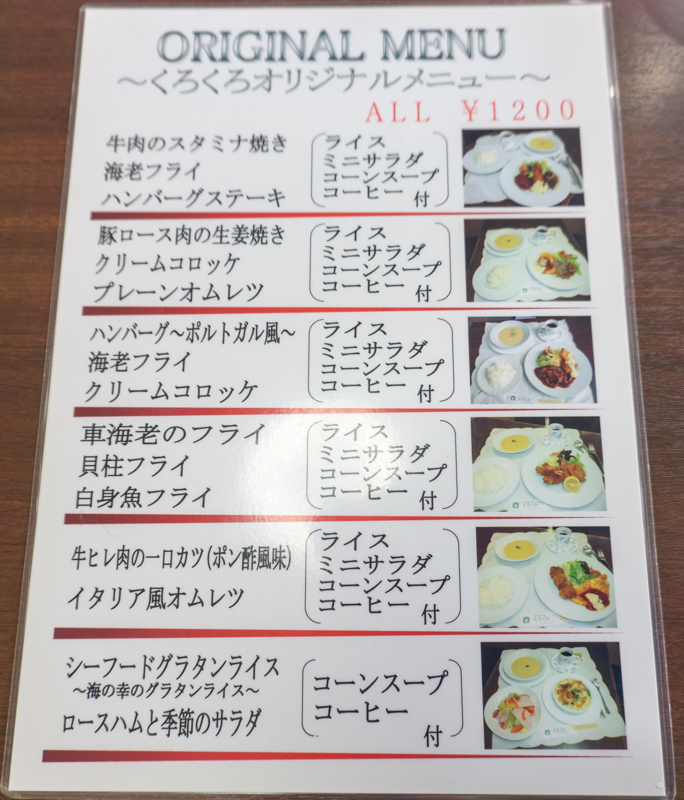 ORIGINAL MENU
～くろくろオリジナルメニュー～
ALL ¥1200
牛肉のスタミナ焼き
海老フライ
ハンバーグステーキ
ライス
ミニサラダ
コーンスープ
コーヒー 付
豚ロース肉の生姜焼き
クリームコロッケ
プレーンオムレツ
ライス
ミニサラダ
コーンスープ
コーヒー 付
ハンバーグ～ポルトガル風～
海老フライ
クリームコロッケ
ライス
ミニサラダ
コーンスープ
コーヒー 付
車海老のフライ
貝柱フライ
白身魚フライ
ライス
ミニサラダ
コーンスープ
コーヒー 付
牛ヒレ肉の一口カツ(ポン酢風味)
イタリア風オムレツ
ライス
ミニサラダ
コーンスープ
コーヒー 付
シーフードグラタンライス
～海の幸のグラタンライス～
ロースハムと季節のサラダ
コーンスープ
コーヒー
付